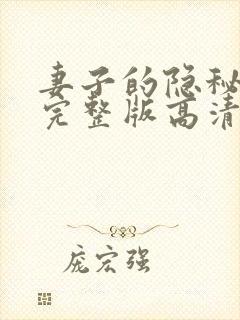 妻子的隐秘
完整版高清
庞宏强